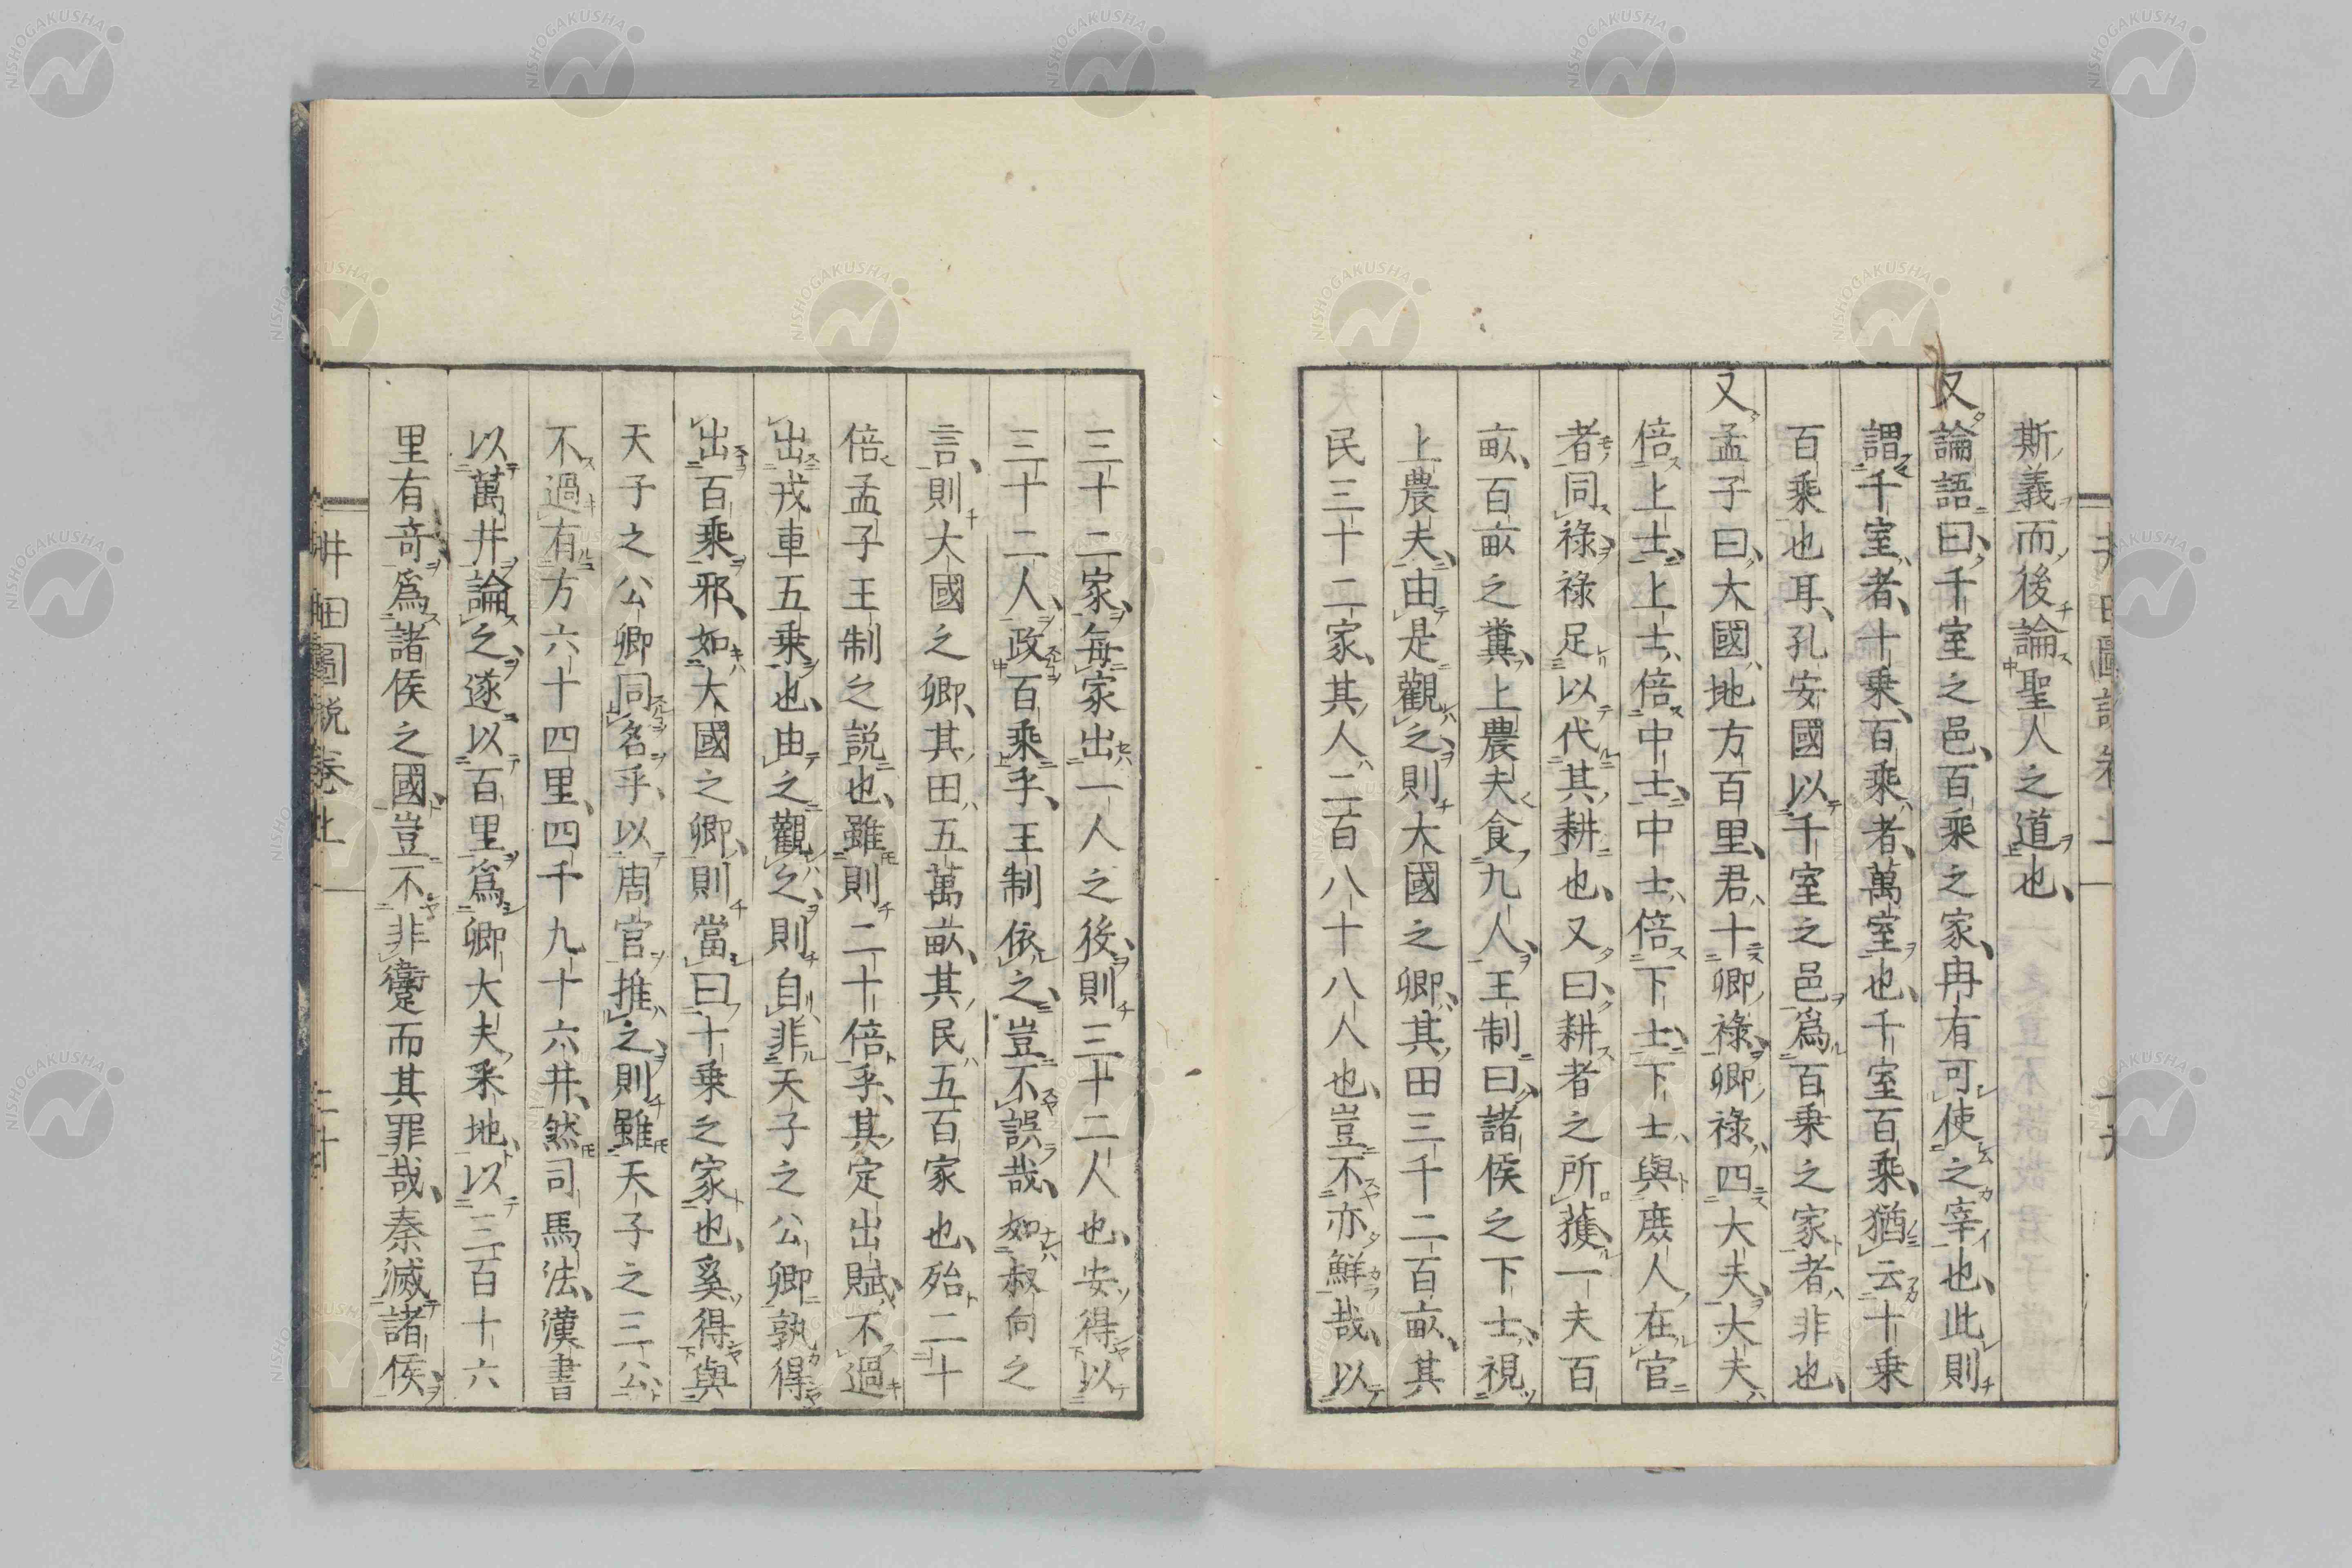 斯義而後論聖人之道也、
又論語曰、千室之邑、百乘之家、冉有可使之宰也、此則
謂千室者、十乘、百乘者、萬室也、千室百乘、猶云十乘
百乘也耳、孔安國以千室之邑爲百乘之家者、非也、
又孟子曰、大國地方百里、君十卿祿、卿祿四大夫、大夫
倍上士、上士倍中士、中士倍下士、下士與庶人在官
者同祿、祿足以代其耕也、又曰、耕者之所獲、一夫百
畝、百畝之糞、上農夫食九人、王制曰、諸侯之下士、視
上農夫、由是觀之、則大國之卿、其田三千二百畝、其
民三十二家、其人二百八十八人也、豈不亦鮮哉、以
三十二家、每家出一人之後、則三十二人也、安得以
三十二人、政百乘乎、王制依之、豈不誤哉、如叔向之
言、則大國之卿、其田五萬畝、其民五百家也、殆二十
倍孟子王制之説也、雖則二十倍乎、其定出賦、不過
出戎車五乘也、由之觀之、則自非天子之公卿、孰得
出百乘邪、如大國之卿、則當曰十乘之家也、奚得與
天子之公卿同名乎、以周官推之、則雖天子之三公、
不過有方六十四里、四千九十六井、然司馬法、漢書
以萬井論之、遂以百里爲卿大夫采地、以三百十六
里有奇爲諸侯之國、豈不非衞而其罪哉、秦滅諸侯、
井田圖説卷上
二十
NISHOGAKUSHA